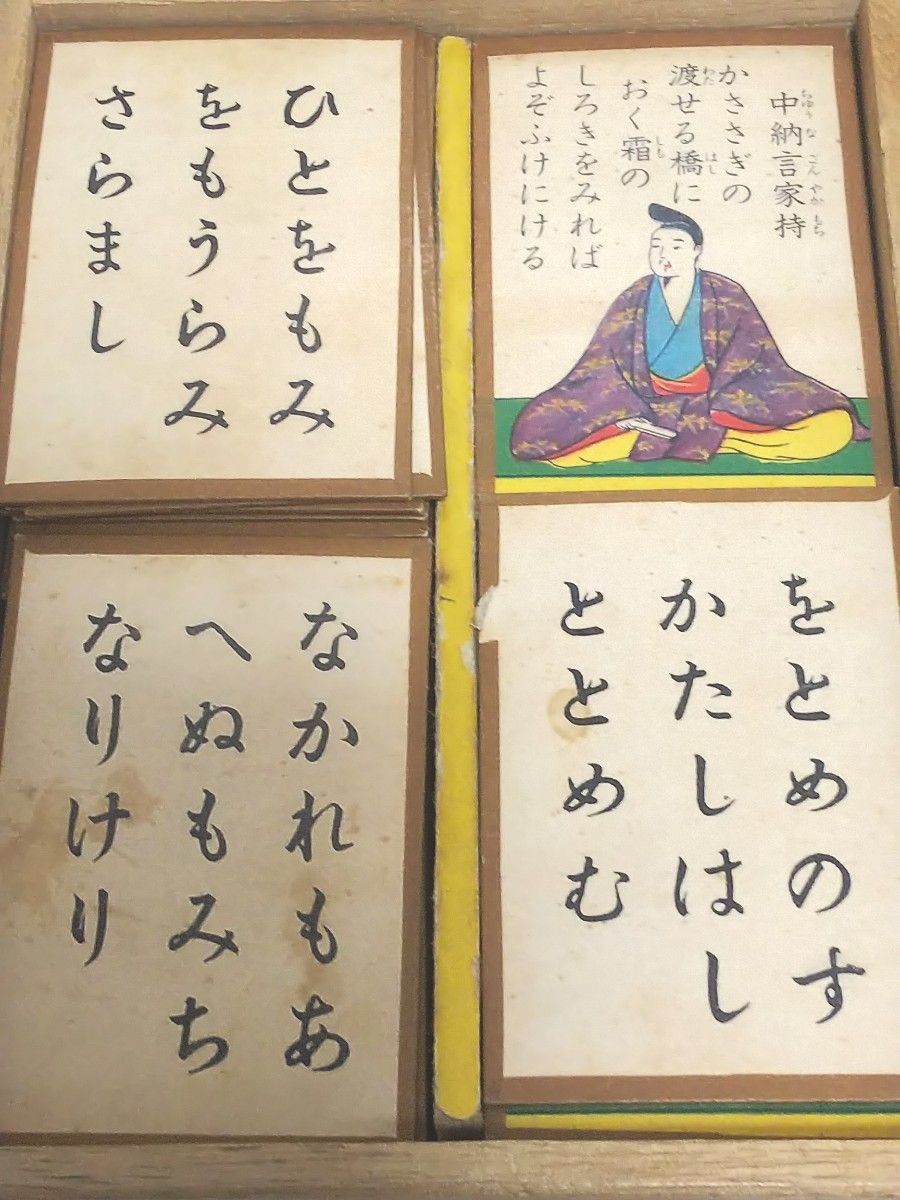 ひとをもみ
をもうらみ
さらまし
中納言家持
ちゆうなごんやかもち
かささぎの
渡せる橋に
わた
はし
おく霜の
しも
しろきをみれば
よぞふけにける
なかれもあ
へぬもみち
なりけり
をとめのす
かたしはし
ととめむ